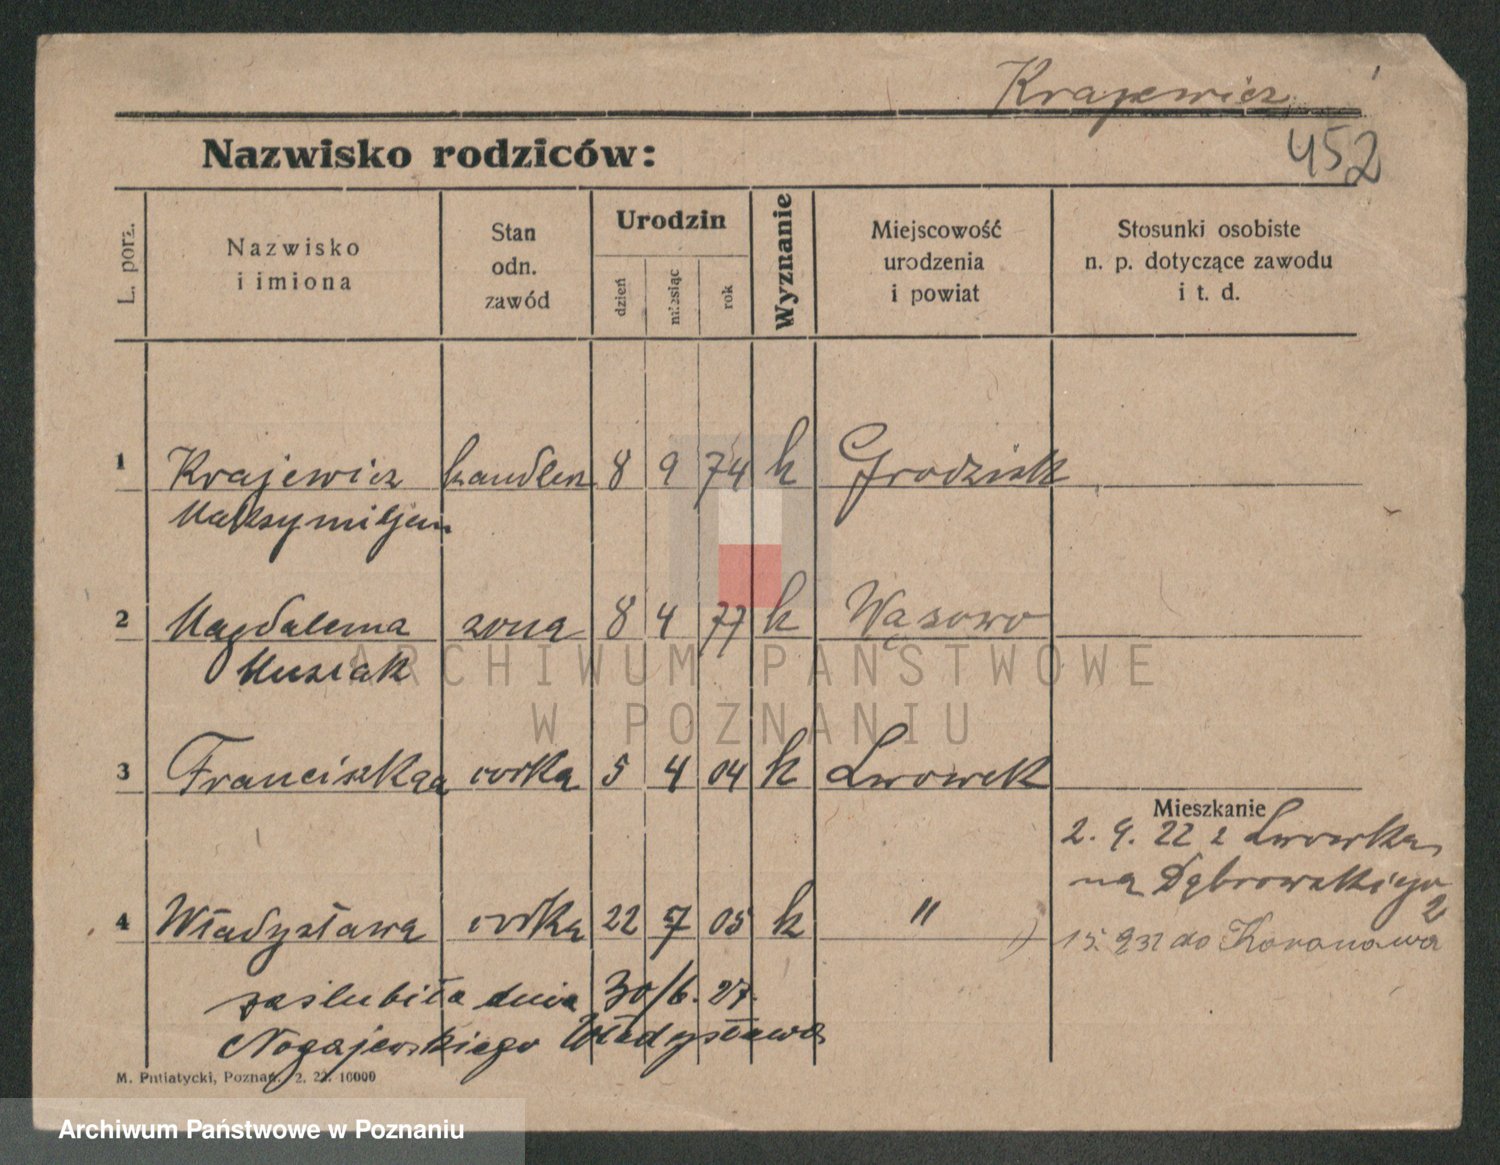 Krajewicz
452
Nazwisko rodziców:
L. porz.
Nazwisko
i imiona
Stan
odn.
zawód
Urodzin
dzień
miesiąc
rok
Wyznanie
Miejscowość
urodzenia
i powiat
Stosunki osobiste
n. p. dotyczące zawodu
i t. d.
1 Krajewicz handlarz 8 9 74 k Grodzisk
Maksymiljan
2 Magdalena żona 8 4 77 k Wąsowo
Musiak
3 Franciszka córka 5 4 04 k Lwówek
Mieszkanie
2. 9. 22 z Lwówka
na Dąbrowskiego
2
4 Władysława córka 22 7 05 k "
1) 15. 9 32 do Koronowa
zaślubiła dnia 30/6. 27.
Nogajewskiego Władysława
M. Putiatycki, Poznań, 2. 22. 10000
ARCHIWUM PAŃSTWOWE
W POZNANIU
Archiwum Państwowe w Poznaniu